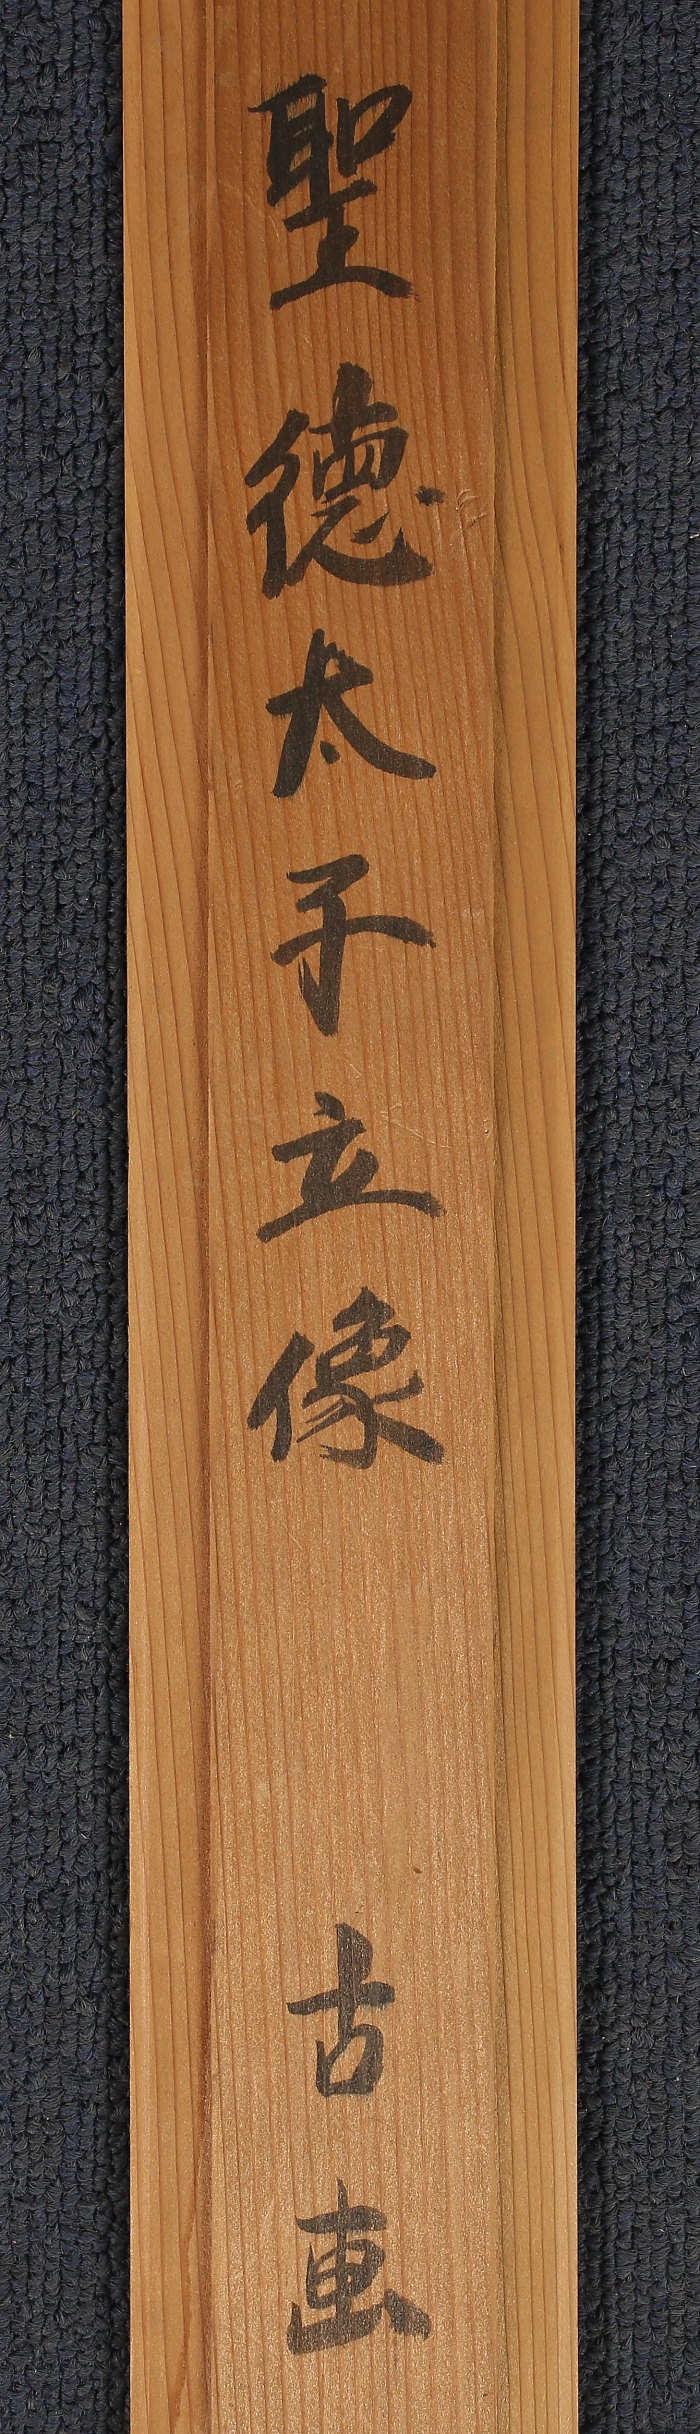 聖徳太子立像　古画